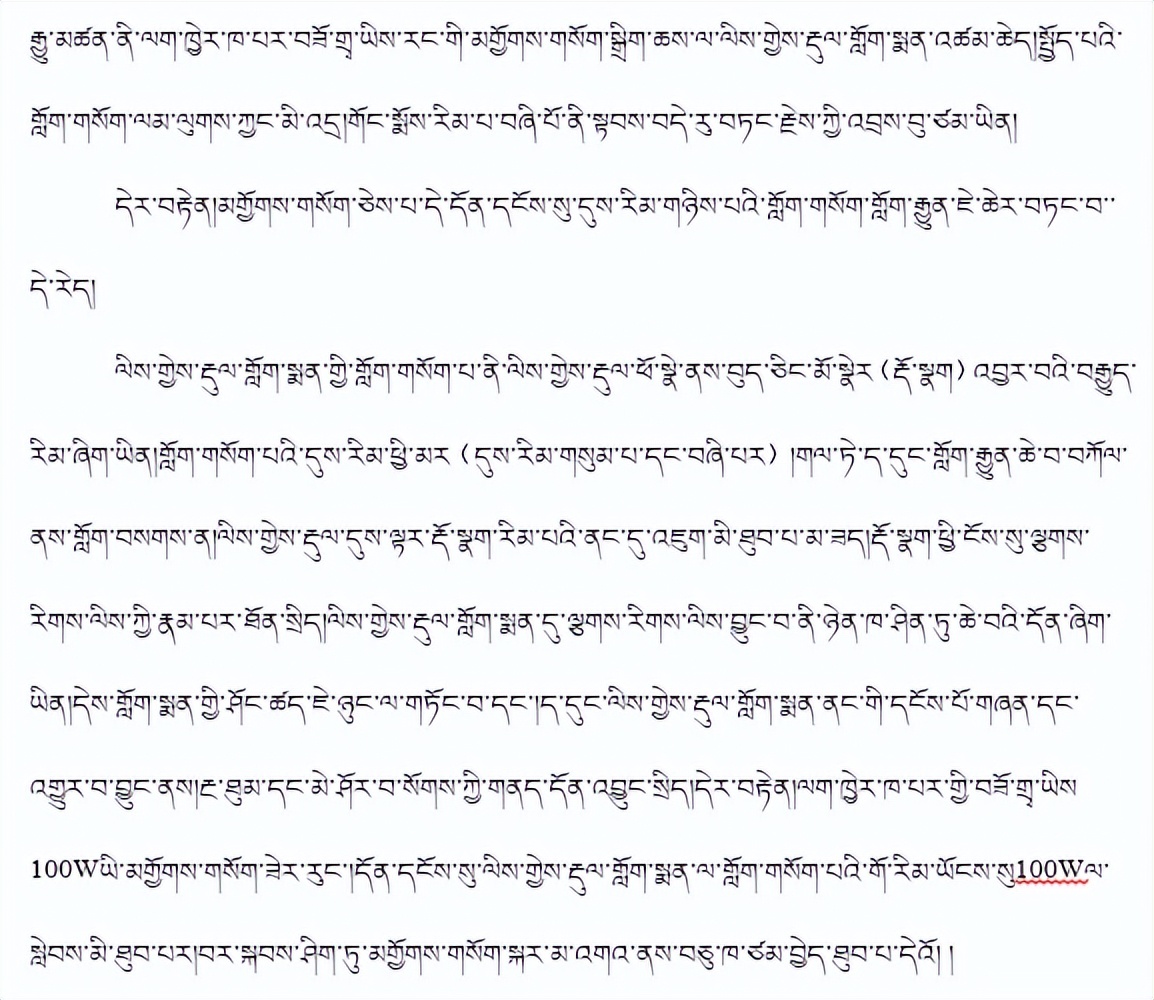 རྒྱུ་མཚན་ནི་ལག་ཁྱེར་ཁ་པར་བཟོ་གྲྭ་ཡིས་རང་གི་མགྱོགས་གསོག་སྒྲིག་ཆས་ལ་ལིས་གྱེས་རྡུལ་གློག་སྨན་འཚམ་ཆེད།སྤྱོད་པའི་
གློག་གསོག་ལམ་ལུགས་ཀྱང་མི་འདྲ།གོང་སྨོས་རིམ་པ་བཞི་པོ་ནི་སྟབས་བདེ་རུ་བཏང་རྗེས་ཀྱི་འབྲས་བུ་ཙམ་ཡིན།
དེར་བརྟེན།མགྱོགས་གསོག་ཅེས་པ་དེ་དོན་དངོས་སུ་དུས་རིམ་གཉིས་པའི་གློག་གསོག་གློག་རྒྱུན་ཇེ་ཆེར་བཏང་བ་་
དེ་རེད།
ལིས་གྱེས་རྡུལ་གློག་སྨན་གྱི་གློག་གསོག་པ་ནི་ལིས་གྱེས་རྡུལ་ཕོ་སྣེ་ནས་བུད་ཅིང་མོ་སྣེར（རྡོ་སྣག）འབྱར་བའི་བརྒྱུད་
རིམ་ཞིག་ཡིན།གློག་གསོག་པའི་དུས་རིམ་ཕྱི་མར（དུས་རིམ་གསུམ་པ་དང་བཞི་པར）།གལ་ཏེ་ད་དུང་གློག་རྒྱུན་ཆེ་བ་བཀོལ་
ནས་གློག་བསགས་ན།ལིས་གྱེས་རྡུལ་དུས་ལྟར་རྡོ་སྣག་རིམ་པའི་ནང་དུ་འཇུག་མི་ཐུབ་པ་མ་ཟད།རྡོ་སྣག་ཕྱི་ངོས་སུ་ལྕགས་
རིགས་ལིས་ཀྱི་རྣམ་པར་ཐོན་སྲིད།ལིས་གྱེས་རྡུལ་གློག་སྨན་དུ་ལྕགས་རིགས་ལིས་བྱུང་བ་ནི་ཉེན་ཁ་ཤིན་ཏུ་ཆེ་བའི་དོན་ཞིག་
ཡིན།དེས་གློག་སྨན་གྱི་ཤོང་ཚད་ཇེ་ཉུང་ལ་གཏོང་བ་དང་།ད་དུང་ལིས་གྱེས་རྡུལ་གློག་སྨན་ནང་གི་དངོས་པོ་གཞན་དང་
འགྱུར་བ་བྱུང་ནས།རྔ་ཐུམ་དང་མེ་ཤོར་བ་སོགས་ཀྱི་གནད་དོན་འབྱུང་སྲིད།དེར་བརྟེན།ལག་ཁྱེར་ཁ་པར་གྱི་བཟོ་གྲྭ་ཡིས
100Wཡི་མགྱོགས་གསོག་ཟེར་རུང་།དོན་དངོས་སུ་ལིས་གྱེས་རྡུལ་གློག་སྨན་ལ་གློག་གསོག་པའི་གོ་རིམ་ཡོངས་སུ100Wལ་
སླེབས་མི་ཐུབ་པར།བར་སྐབས་ཤིག་ཏུ་མགྱོགས་གསོག་སྐར་མ་འགའ་ནས་བཅུ་ཁ་ཙམ་བྱེད་ཐུབ་པ་དེའོ།།